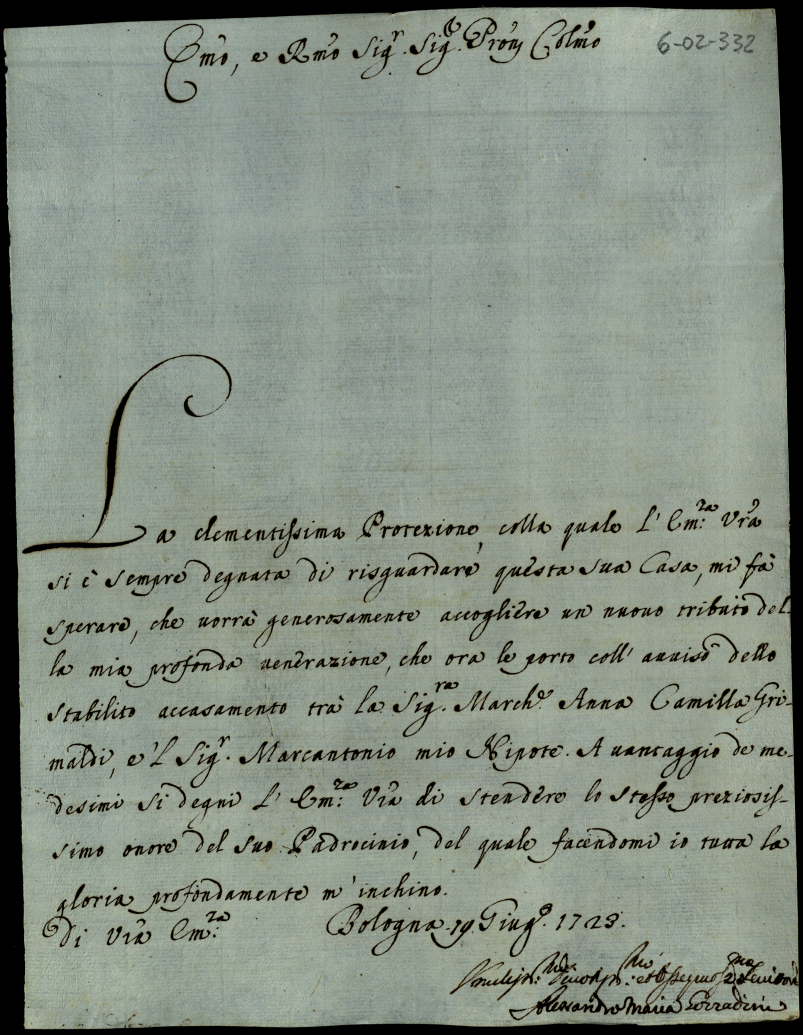 6-02-332
Emo, e Rmo Sigr. Sigr. Prõn Colmo
La clementissima Protezione, colla quale l'Em:za Vra
si è sempre degnata di risguardare questa sua Casa, mi fà
sperare, che vorrà generosamente accogliere un nuovo tributo del-
la mia profonda venerazione, che ora le porto coll'avviso dello
stabilito accasamento trà la Sigra. Marche. Anna Camilla Gri-
maldi, e'l Sigr. Marcantonio mio Nipote. A vantaggio de me-
desimi si degni l'Em:za Vra di stendere lo stesso preziosis-
simo onore del suo Padrocinio, del quale facendomi io tutta la
gloria profondamente m'inchino.
Di Vra Em:za Bologna 19. Giugo. 1723.
Alessandro Maria